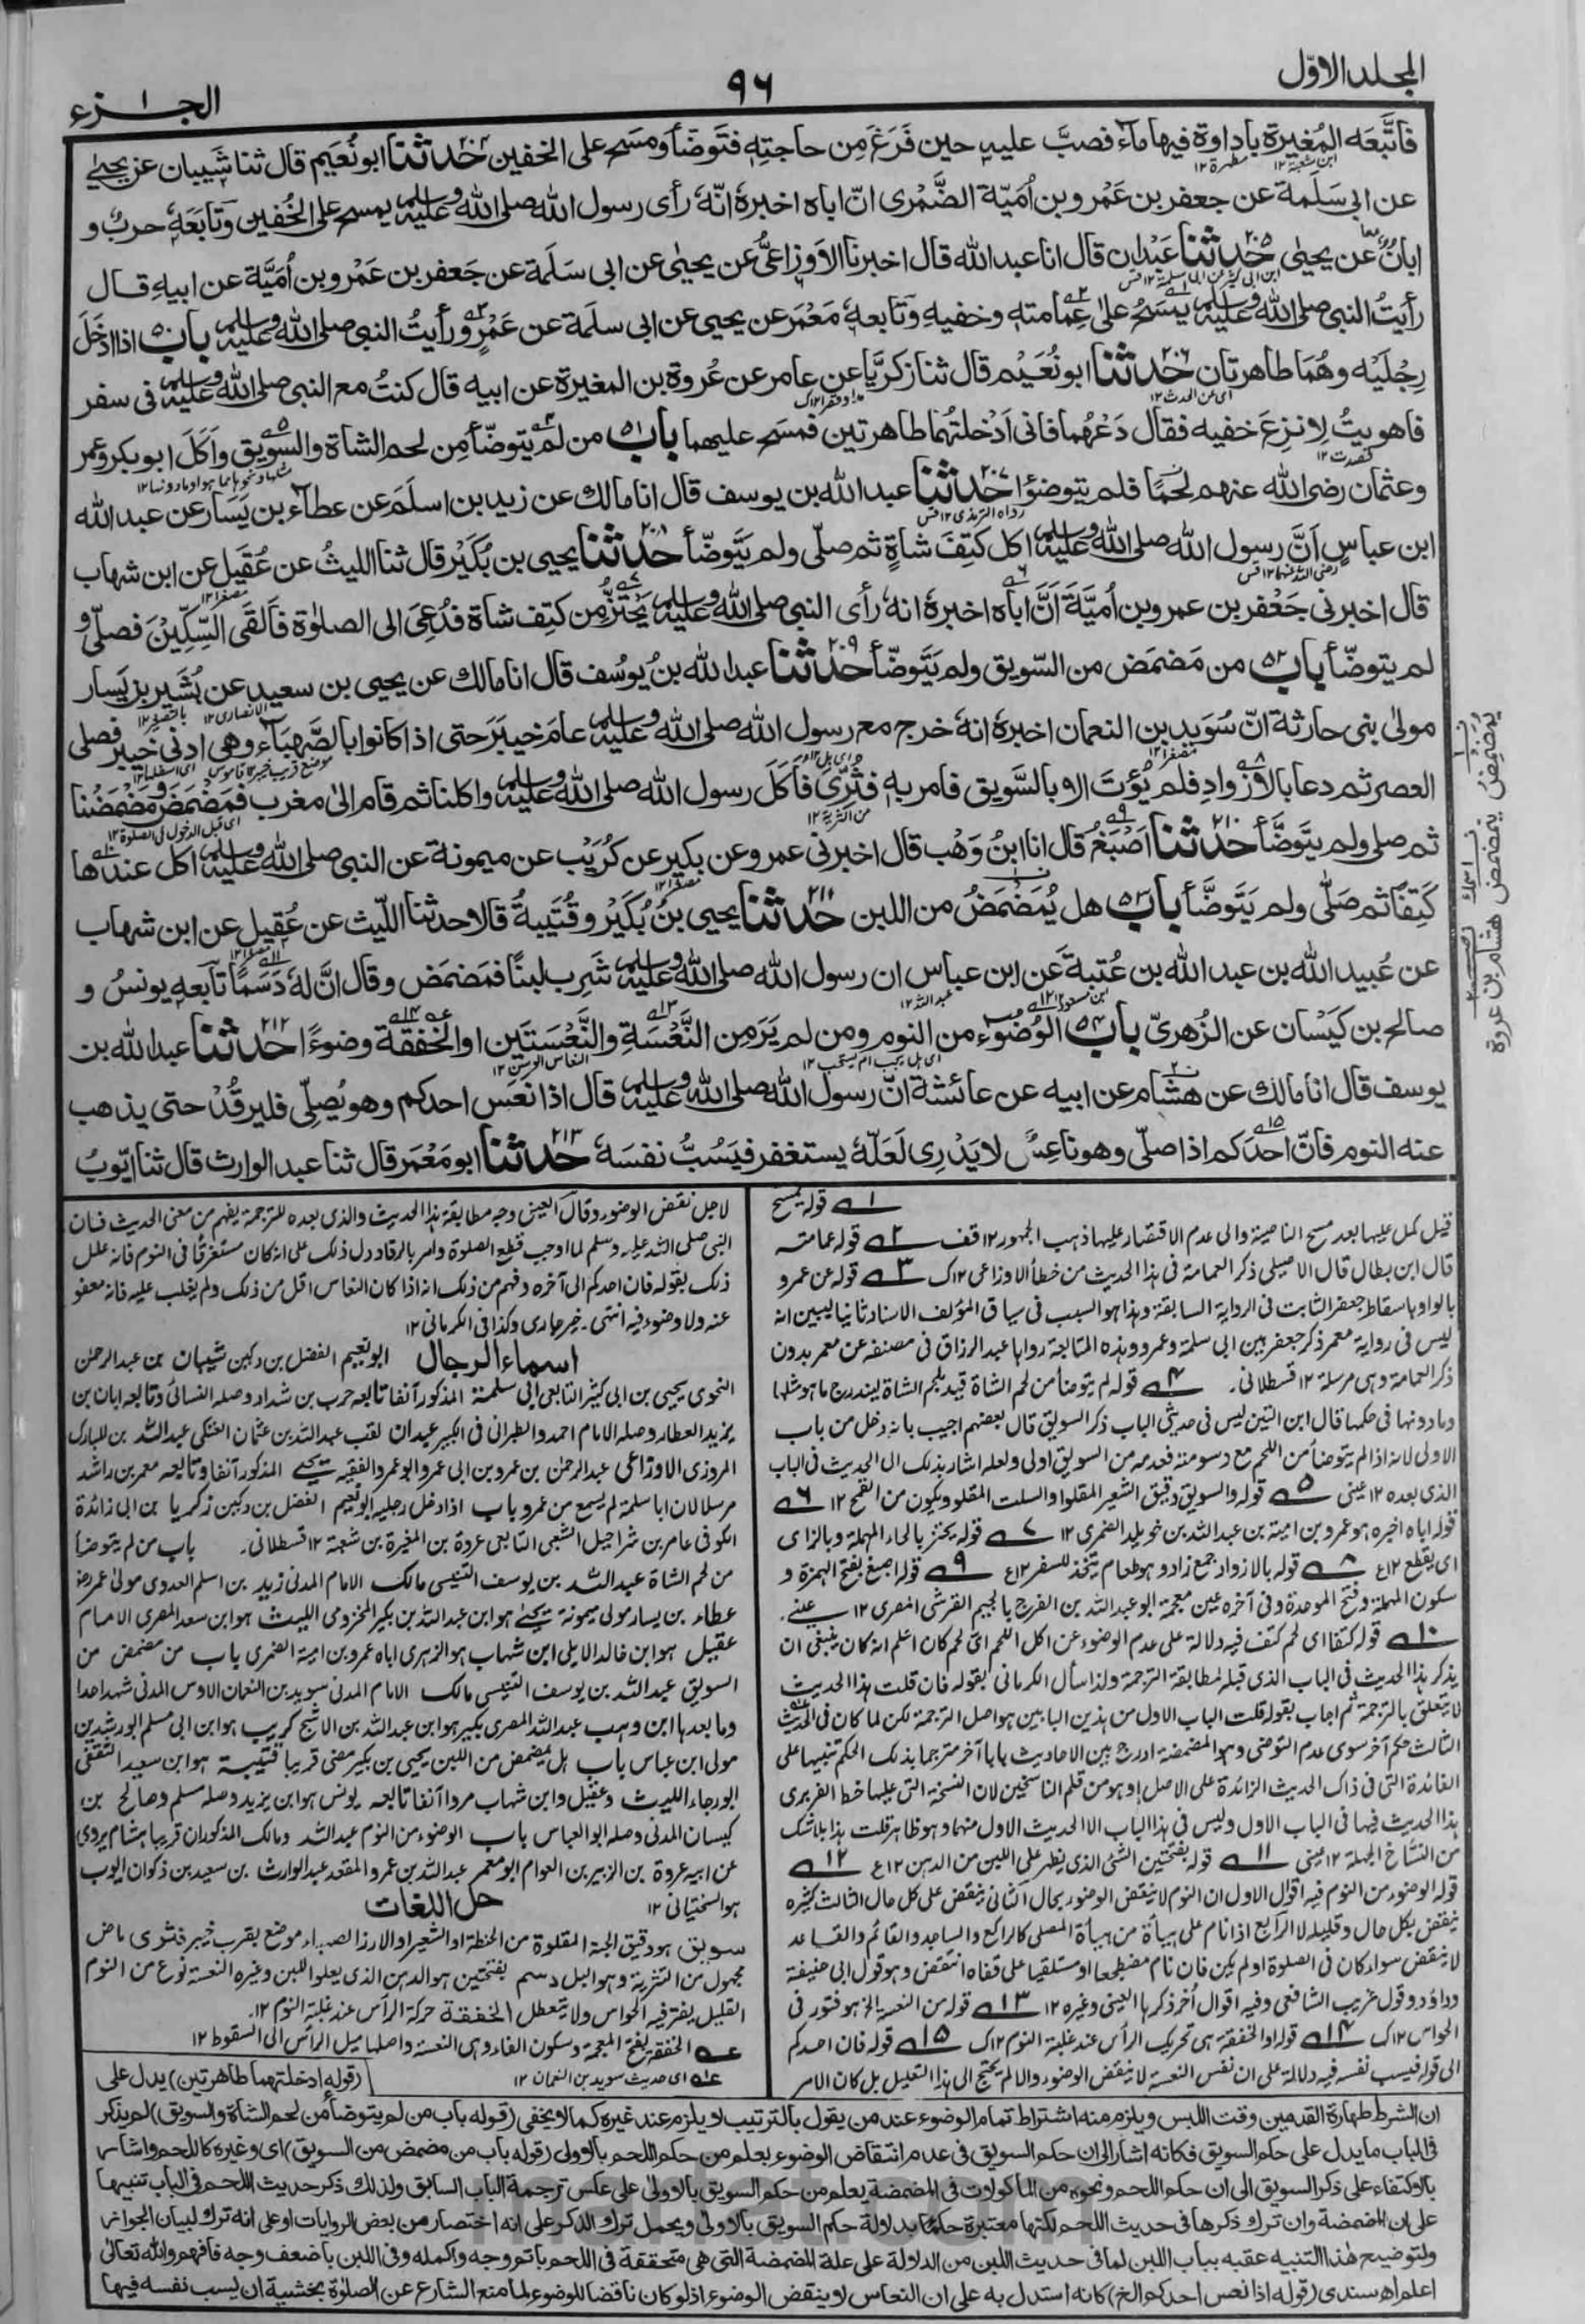 المجلد الاوّل
٩٦
الجزء ١
فاتَّبَعَه المُغيرة باداوة فيها ماء فصبَّ عليه حين فَرَغَ مِن حاجتِهٖ فتَوضّأ ومسَح على الخفين حدثنا ابو نُعَيم قال ثنا شَيبان عن يحيىٰ
عن ابى سَلَمة عن جعفر بن عَمْرو بن اُميّة الضَّمْرى انّ اباه اخبرهٗ انّهٗ رأى رسول الله صلى الله عليه وسلم يمسح على الخُفين وتابَعَهٗ حربٌ و
ابانٌ عن يحيىٰ حدثنا عَبْدان قال انا عبد الله قال اخبرنا الاَوزاعىُّ عن يحيىٰ عن ابى سَلَمة عن جَعفر بن عَمْرو بن اُمَيَّة عن ابيهِ قال
رأيتُ النبى صلى الله عليه وسلم يَمْسَحُ علىٰ عِمامتهٖ وخفيهِ وتابعهٗ مَعْمَر عن يحيى عن ابى سلَمة عن عَمْرٍو رأيتُ النبى صلى الله عليه وسلم باب ٥٠ اذا ادخَلَ
رِجْلَيْه وهُمَا طاهرتان حدثنا ابو نُعَيْم قال ثنا زكريَّا عن عامر عن عُروة بن المغيرة عن ابيه قال كنتُ مع النبى صلى الله عليه وسلم فى سفر
فاهويتُ لِانزِعَ خفيه فقال دَعْهُما فانى اَدْخلتُهما طاهرتين فمسَح عليهما باب ٥١ من لم يتوضّأ مِن لحم الشاة والسويق واَكَلَ ابوبكر وعمر
وعثمان رضى الله عنهم لحمًا فلم يتوضؤا حدثنا عبد الله بن يوسف قال انا مالك عن زيد بن اسلَم عن عطاء بن يَسَار عن عبد الله
ابن عباسٍ اَنَّ رسول الله صلى الله عليه وسلم اكل كتِفَ شاةٍ ثم صلّى ولم يَتَوضّأ حدثنا يحيى بن بُكَيْر قال ثنا الليثُ عن عُقَيل عن ابن شهاب
قال اخبرنى جَعْفر بن عمرو بن اُميَّةَ اَنَّ اباه اخبرهٗ انهٗ رأى النبى صلى الله عليه وسلم يَحْتَزُّ مِن كتِف شاة فدُعِىَ الى الصلوٰة فاَلقَى السِّكِّيْنَ فصلّىٰ و
لم يتوضّأ باب ٥٢ من مَضمَض من السّويق ولم يَتَوضّأ حدثنا عبد الله بنُ يوسُف قال انا مالك عن يحيى بن سعيد عن بُشَير بن يَسار
مولىٰ بنى حارثة انّ سُوَيد بن النعمان اخبرهٗ انهٗ خرج مع رسول الله صلى الله عليه وسلم عامَ خيبَرَ حتى اذا كانوا بالصَّهبَاء وهى ادنىٰ خيبر فصلى
العصر ثم دعا بالاَزوادِ فلم يُؤتَ الا بالسَّويق فامر به فثُرِّىَ فاَكَلَ رسول الله صلى الله عليه وسلم واكلنا ثم قام الىٰ مغرب فمَضمَضَ ومَضمَضْنا
ثم صلى ولم يتوَضَّأ حدثنا اَصْبَغُ قال انا ابنُ وَهْب قال اخبرنى عمرو عن بكير عن كُرَيْب عن ميمونة عن النبى صلى الله عليه وسلم اكل عندها
كَتِفًا ثم صَلّٰى ولم يَتَوضَّأ باب ٥٣ هل يُمَضْمَضُ من اللبن حدثنا يحيى بنُ بُكَيْر وقُتَيبةُ قالا حدثنا اللّيث عن عُقيل عن ابن شهاب
عن عُبيد الله بن عبد الله بن عُتبة عَن ابن عباس ان رسول الله صلى الله عليه وسلم شَرِب لبنًا فمَضمَض وقال انَّ لهٗ دَسَمًا تابعه يونسُ و
صالح بن كَيْسان عن الزُهرىّ باب ٥٤ الوُضُوء من النوم ومن لم يَرَ مِن النَّعْسَةِ والنَّعْسَتَين او الخَفْقَة وضوءًا حدثنا عبد الله بن
يوسف قال انا مالك عن هشام عن ابيه عن عائشة انّ رسول الله صلى الله عليه وسلم قال اذا نعَس احدكم وهو يُصلّى فليرقُدْ حتى يذهب
عنه النوم فانّ احدَكم اذا صلّى وهو ناعِسٌ لا يَدْرِى لَعَلّهٗ يستغفر فيَسُبُّ نفسَهٗ حدثنا ابو مَعْمَر قال ثنا عبد الوارث قال ثنا ايّوبُ
قوله يمسح
قيل كمل عليها بعد مسح الناصية والى عدم الاقتصار عليها ذهب الجمهور ١٢ قف قوله عمامته
قال ابن بطال قال الاصيلى ذكر العمامة فى هذا الحديث من خطأ الاوزاعى ١٢ ك قوله عن عمرو
بالواو باسقاط جعفر الثابت فى الرواية السابقة وهذا هو السبب فى سياق المؤلف الاسناد ثانيا ليبين انه
ليس فى رواية معمر ذكر جعفر بين ابى سلمة وعمرو وهذه المتابعة رواها عبد الرزاق فى مصنفه عن معمر بدون
ذكر العمامة وهى مرسلة ١٢ قسطلانى. قوله لم يتوضأ من لحم الشاة قيد بلحم الشاة ليندرج ما هو مثلها
وما دونها فى حكمها قال ابن التين ليس فى حديثى الباب ذكر السويق قال بعضهم اجيب بانه دخل من باب
الاولى لانه اذا لم يتوضأ من اللحم مع دسومته فعدمه من السويق اولى ولعله اشار بذلك الى الحديث فى الباب
الذى بعده ١٢ عينى قوله والسويق دقيق الشعير المقلو او السلت المقلو ويكون من القمح ١٢
قوله اباه اخبره هو عمرو بن امية بن عبد الله بن خويلد الضمرى ١٢ قوله يحتز بالحاء المهملة وبالزاى
اى يقطع ١٢ ع قوله بالازواد جمع زاد وهو طعام يتخذ للسفر ١٢ ع قوله اصبغ بفتح الهمزة و
سكون المهملة وفتح الموحدة وفى آخره غين معجمة ابو عبد الله بن الفرج بالجيم القرشى المصرى ١٢ عينى.
قوله كتفا اى لحم كتف فيه دلالة على عدم الوضوء عن اكل اللحم اى لحم كان اعلم انه كان ينبغى ان
يذكر هذا الحديث فى الباب الذى قبله لمطابقة الترجمة ولذا سأل الكرمانى بقوله فان قلت هذا الحديث
لا يتعلق بالترجمة ثم اجاب بقوله قلت الباب الاول من هذين البابين هو اصل الترجمة لكن لما كان فى الحديث
الثالث حكم آخر سوى عدم التوضى وهو المضمضة ادرج بين الاحاديث بابا آخر مترجما بذلك الحكم تنبيها على
الفائدة التى فى ذاك الحديث الزائدة على الاصل او هو من قلم الناسخين لان النسخة التى عليها خط الفربرى
هذا الحديث فيها فى الباب الاول وليس فى هذا الباب الا الحديث الاول منهما وهو ظاهر قلت هذا بلا شك
من النساخ الجهلة ١٢ عينى قوله بفتحتين الشئ الذى يظهر على اللبن من الدهن ١٢ ع
قوله الوضوء من النوم فيه اقوال الاول ان النوم لا ينقض الوضوء بحال الثانى ينقض على كل حال الثالث كثيره
ينقض بكل حال وقليله لا الرابع اذا نام على هيأة من هيأة المصلى كالراكع والساجد والقائم والقاعد
لا ينقض سواء كان فى الصلوة او لم يكن فان نام مضطجعا او مستلقيا على قفاه انتقض وهو قول ابى حنيفة
وداؤد وقول غريب الشافعى وفيه اقوال أخر ذكرها العينى وغيره ١٢ قوله من النعسة الخ هو فتور فى
الحواس ١٢ ك قوله او الخفقة هى تحريك الرأس عند غلبة النوم ١٢ ك قوله فان احدكم
الى قوله فيسب نفسه فيه دلالة على ان نفس النعسة لا ينقض الوضوء والا لم يحتج الى هذا التعليل بل كان الامر
لاجل نقض الوضوء وقال العينى وجه مطابقة هذا الحديث والذى بعده للترجمة يفهم من معنى الحديث فان
النبى صلى الله عليه وسلم لما اوجب قطع الصلوة وامر بالرقاد دل ذلك على انه كان مستغرقا فى النوم فانه علل
ذلك بقوله فان احدكم الى آخره وفهم من ذلك انه اذا كان النعاس اقل من ذلك ولم يغلب عليه فانه معفو
عنه ولا وضوء فيه انتهى. خير جارى وكذا فى الكرمانى ١٢
اسماء الرجال ابو نعيم الفضل بن دكين شيبان بن عبد الرحمن
النحوى يحيى بن ابى كثير التابعى ابى سلمة المذكور آنفا تابعه حرب بن شداد وصله النسائى وتابعه ابان بن
يزيد العطار وصله الامام احمد والطبرانى فى الكبير عبدان لقب عبد الله بن عثمان العتكى عبد الله بن المبارك
المروزى الاوزاعى عبد الرحمٰن بن عمرو بن ابى عمرو ابو عمرو الفقيه يحيى المذكور آنفا وتابعه معمر بن راشد
مرسلا لان ابا سلمة لم يسمع من عمرو باب اذا دخل رجليه ابو نعيم الفضل بن دكين زكريا بن ابى زائدة
الكوفى عامر بن شراحيل الشعبى التابعى عروة بن المغيرة بن شعبة ١٢ قسطلانى. باب من لم يتوضأ
من لحم الشاة عبد الله بن يوسف التنيسى مالك الامام المدنى زيد بن اسلم العدوى مولى عمر
عطاء بن يسار مولى ميمونة يحيىٰ هو ابن عبد الله بن بكير المخزومى الليث هو ابن سعد المصرى الامام
عقيل هو ابن خالد الايلى ابن شهاب هو الزهرى اباه عمرو بن امية الضمرى باب من مضمض من
السويق عبد الله بن يوسف التنيسى مالك الامام المدنى سويد بن النعمان الاوسى المدنى شهد احدا
وما بعدها ابن وهب عبد الله المصرى بكير هو ابن عبد الله بن الاشج كريب هو ابن ابى مسلم ابو رشدين
مولى ابن عباس باب هل يمضمض من اللبن يحيى بن بكير مضى قريبا قتيبة هو ابن سعيد الثقفى
ابو رجاء الليث وعقيل وابن شهاب مروا آنفا تابعه يونس هو ابن يزيد وصله مسلم وصالح بن
كيسان المدنى وصله ابو العباس باب الوضوء من النوم عبد الله ومالك المذكوران قريبا هشام يروى
عن ابيه عروة بن الزبير بن العوام ابو معمر عبد الله بن عمرو المقعد عبد الوارث بن سعيد بن ذكوان ايوب
هو السختيانى ١٢ حل اللغات
سويق هو دقيق الحبة المقلوة من الحنطة او الشعير او الارز الصهباء موضع بقرب خيبر فثرى ماض
مجهول من التثرية وهو البل دسم بفتحتين هو الدهن الذى يعلو اللبن وغيره النعسة نوع من النوم
القليل يفتر فيه الحواس ولا يتعطل الخفقة حركة الرأس عند غلبة النوم ١٢.
الخفقة بفتح المعجمة وسكون الفاء وهى النعسة واصلها ميل الرأس الى السقوط ١٢
اى حديث سويد بن النعمان ١٢
(قوله ادخلتهما طاهرتين) يدل على
ان الشرط طهارة القدمين وقت اللبس ويلزم منه اشتراط تمام الوضوء عند من يقول بالترتيب لا يلزم عند غيره كما لا يخفى (قوله باب من لم يتوضأ من لحم الشاة والسويق) لم يذكر
فى الباب ما يدل على حكم السويق فكانه اشار الى ان حكم السويق فى عدم انتقاض الوضوء يعلم من حكم اللحم بالاولى (قوله باب من مضمض من السويق) اى وغيره كاللحم واشار
بالاكتفاء على ذكر السويق الى ان حكم اللحم ونحوه من المأكولات فى المضمضة يعلم من حكم السويق بالاولىٰ على عكس ترجمة الباب السابق ولذلك ذكر حديث اللحم فى الباب تنبيها
على ان المضمضة وان ترك ذكرها فى حديث اللحم لكنها معتبرة حكما بدلالة حكم السويق بالاولىٰ ويحمل ترك الذكر على انه اختصار من بعض الروايات او على انه ترك لبيان الجواز
ولتوضيح هذا التنبيه عقبه بباب اللبن لما فى حديث اللبن من الدلالة على علة المضمضة التى هى متحققة فى اللحم باتم وجه واكمله وفى اللبن باضعف وجه فافهم والله تعالىٰ
اعلم اه سندى (قوله اذا نعس احدكم الخ) كانه استدل به على ان النعاس لا ينقض الوضوء اذ لو كان ناقضا للوضوء لما منع الشارع عن الصلوٰة بخشية ان يسب نفسه فيها